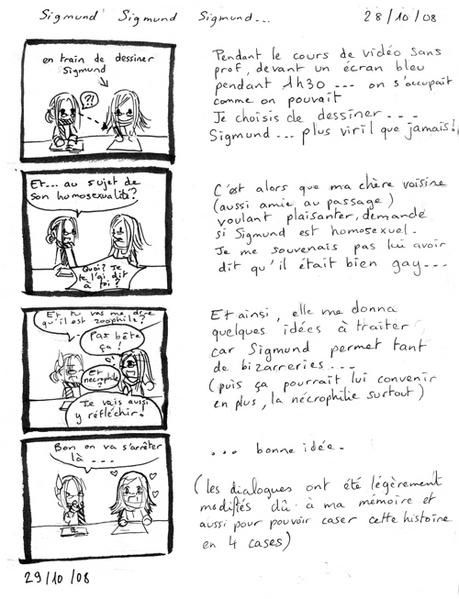 Sigmund Sigmund Sigmund...
28/10/08
en train de dessiner
Sigmund
?!
Pendant le cours de vidéo sans
prof, devant un écran bleu
pendant 1h30 --- on s'occupait
comme on pouvait
Je choisis de dessiner ---
Sigmund... plus viril que jamais!
Et... au sujet de
son homosexualité?
Quoi? Je
te l'ai dit
à toi?
C'est alors que ma chère voisine
(aussi amie au passage)
voulant plaisanter, demande
si Sigmund est homosexuel.
Je me souvenais pas lui avoir
dit qu'il était bien gay---
Et tu vas me dire
qu'il est zoophile?
Pas bête
ça!
Et
nécrophile?
Je vais aussi
y réfléchir!
Et ainsi, elle me donna
quelques idées à traiter
car Sigmund permet tant
de bizarreries ---
(puis ça pourrait lui convenir
en plus, la nécrophilie surtout)
Bon on va s'arrêter
là ---
... bonne idée.
(les dialogues ont été légèrement
modifiés dû à ma mémoire et
aussi pour pouvoir caser cette histoire
en 4 cases)
29/10/08